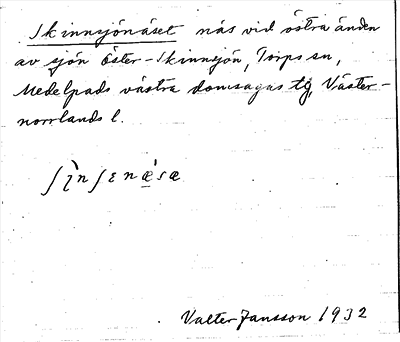 Skinnsjönäset näs vid östra änden
av sjön Öster-Skinnsjön, Torps sn,
Medelpads västra domsagas tg, Väster-
norrlands l.
ʃı̀nʃɛnæ̀sæ
Valter Jansson 1932